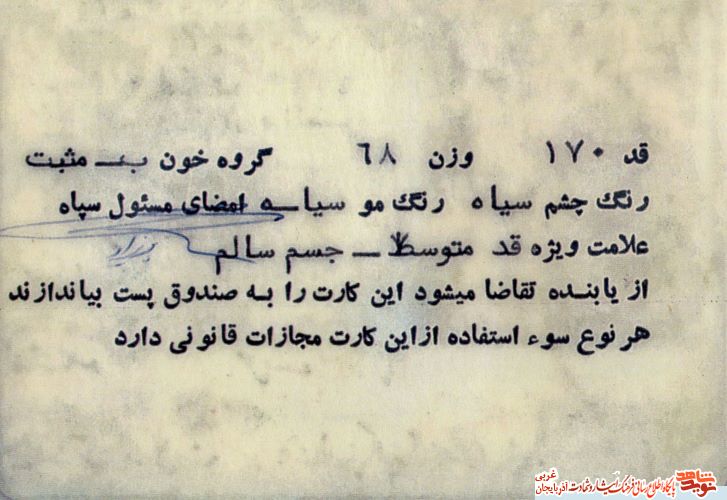 قد ۱۷۰ وزن ۶۸ گروه خون ب ـ مثبت
رنگ چشم سیاه رنگ مو سیاه امضای مسئول سپاه
علامت ویژه قد متوسط ـ جسم سالم
از یابنده تقاضا میشود این کارت را به صندوق پست بیاندازند
هر نوع سوء استفاده از این کارت مجازات قانونی دارد
نوید شاهد
پایگاه اطلاع رسانی فرهنگ ایثار و شهادت آذربایجان غربی